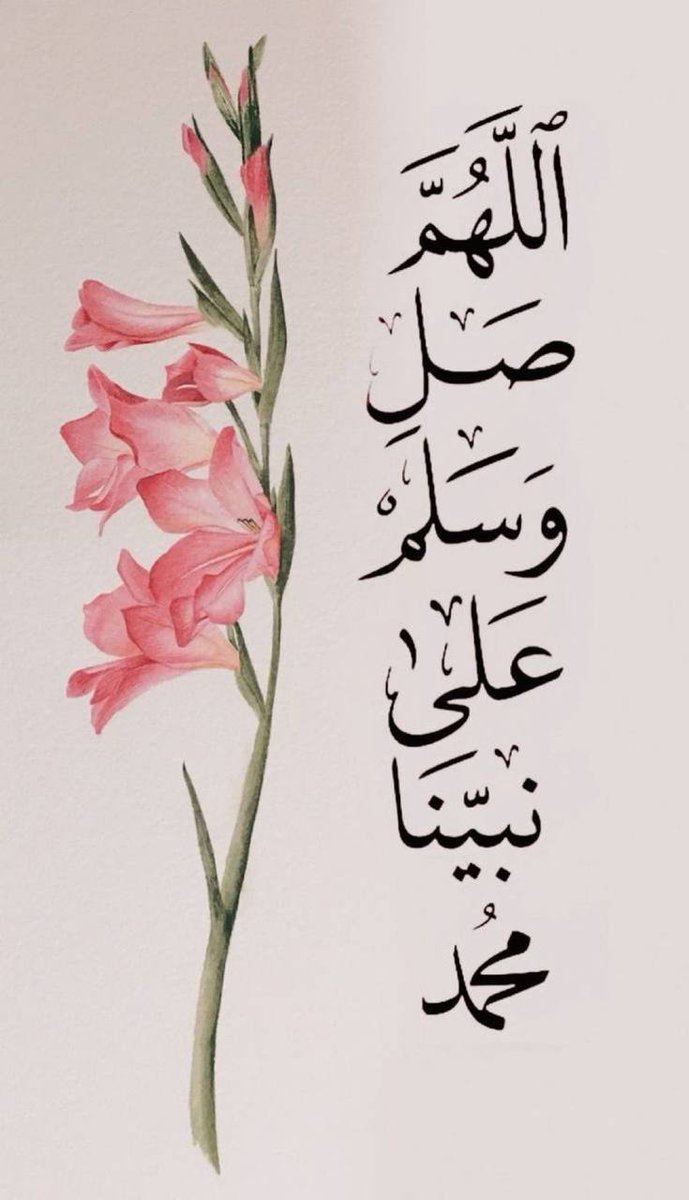 ٱللَّهُمَّ
صَلِ
وَسَلَمْ
عَلىٰ
نبيَّنَا
محمُد